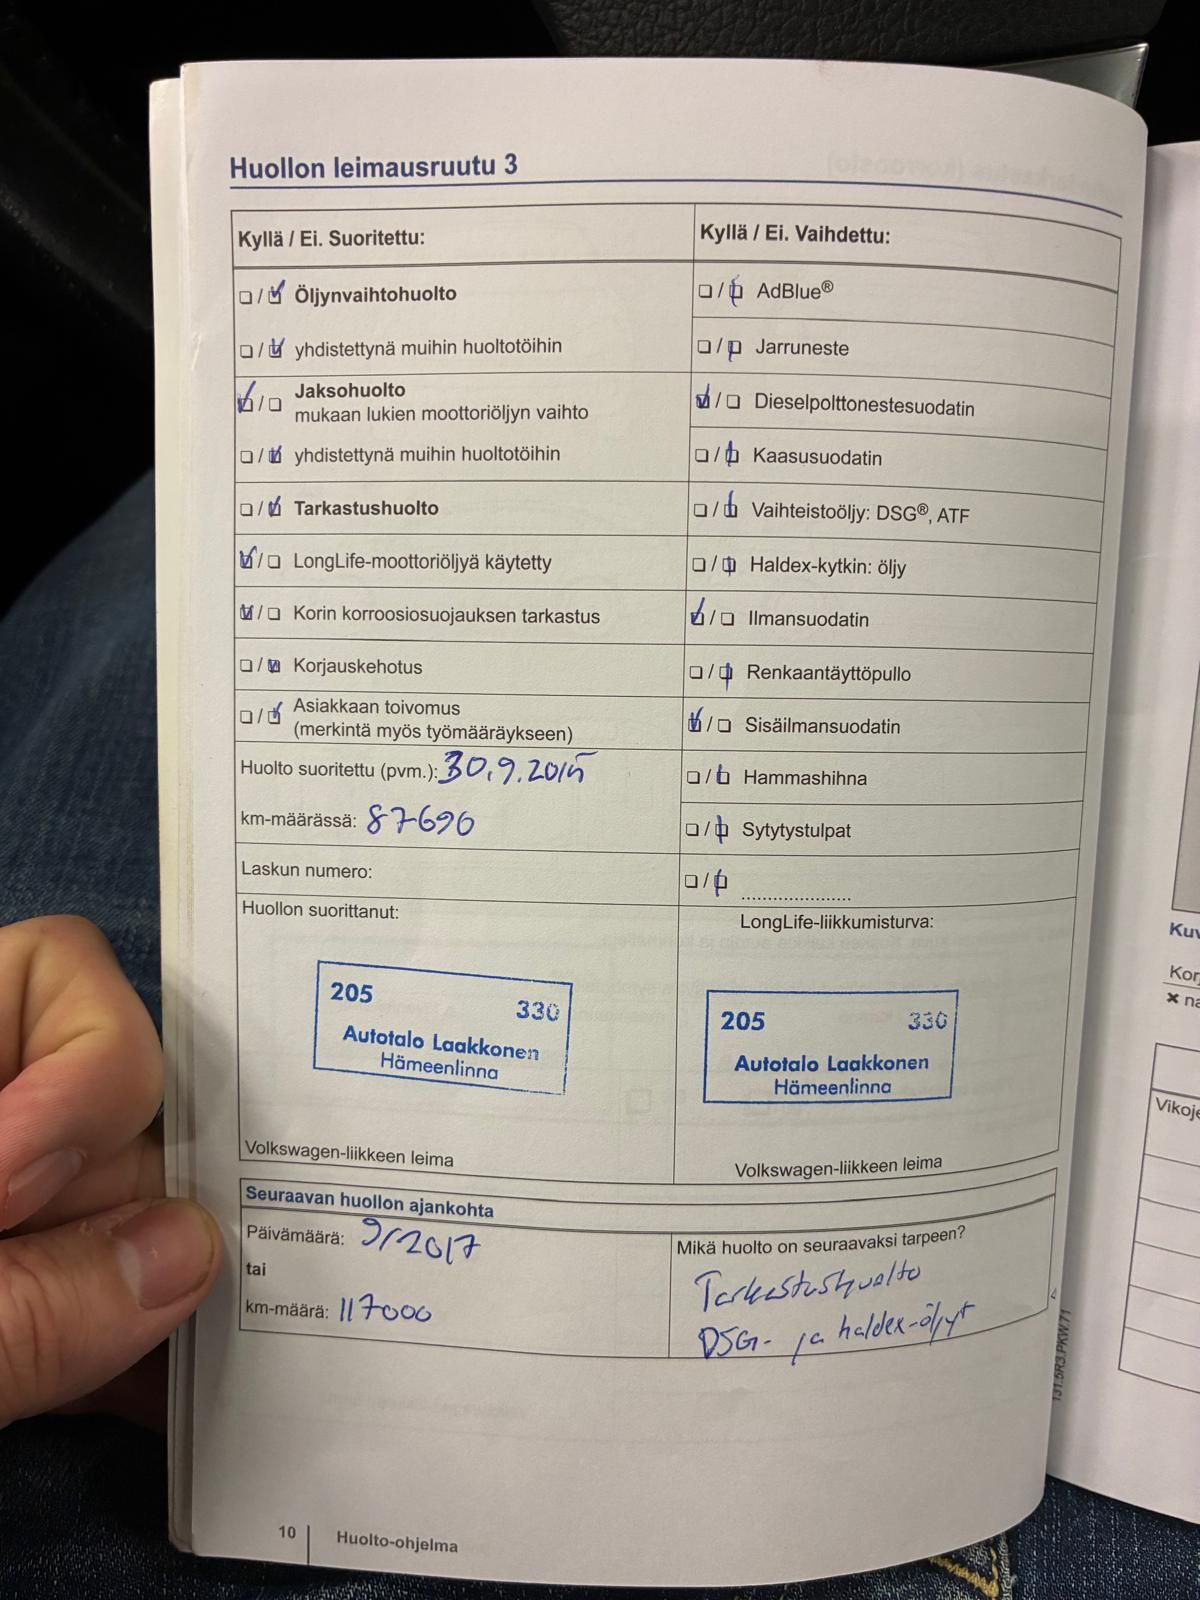 Huollon leimausruutu 3
Kyllä / Ei. Suoritettu:
Öljynvaihtohuolto
yhdistettynä muihin huoltotöihin
Jaksohuolto
mukaan lukien moottoriöljyn vaihto
yhdistettynä muihin huoltotöihin
Tarkastushuolto
LongLife-moottoriöljyä käytetty
Korin korroosiosuojauksen tarkastus
Korjauskehotus
Asiakkaan toivomus
(merkintä myös työmääräykseen)
Huolto suoritettu (pvm.): 30.9.2015
km-määrässä: 87690
Laskun numero:
Huollon suorittanut:
205 330
Autotalo Laakkonen
Hämeenlinna
Volkswagen-liikkeen leima
Kyllä / Ei. Vaihdettu:
AdBlue®
Jarruneste
Dieselpolttonestesuodatin
Kaasusuodatin
Vaihteistoöljy: DSG®, ATF
Haldex-kytkin: öljy
Ilmansuodatin
Renkaantäyttöpullo
Sisäilmansuodatin
Hammashihna
Sytytystulpat
.....................
LongLife-liikkumisturva:
205 330
Autotalo Laakkonen
Hämeenlinna
Volkswagen-liikkeen leima
Seuraavan huollon ajankohta
Päivämäärä: 9/2017
tai
km-määrä: 117000
Mikä huolto on seuraavaksi tarpeen?
Tarkastushuolto
DSG- ja haldex-öljyt
131.5R3.PKW.71
10 Huolto-ohjelma